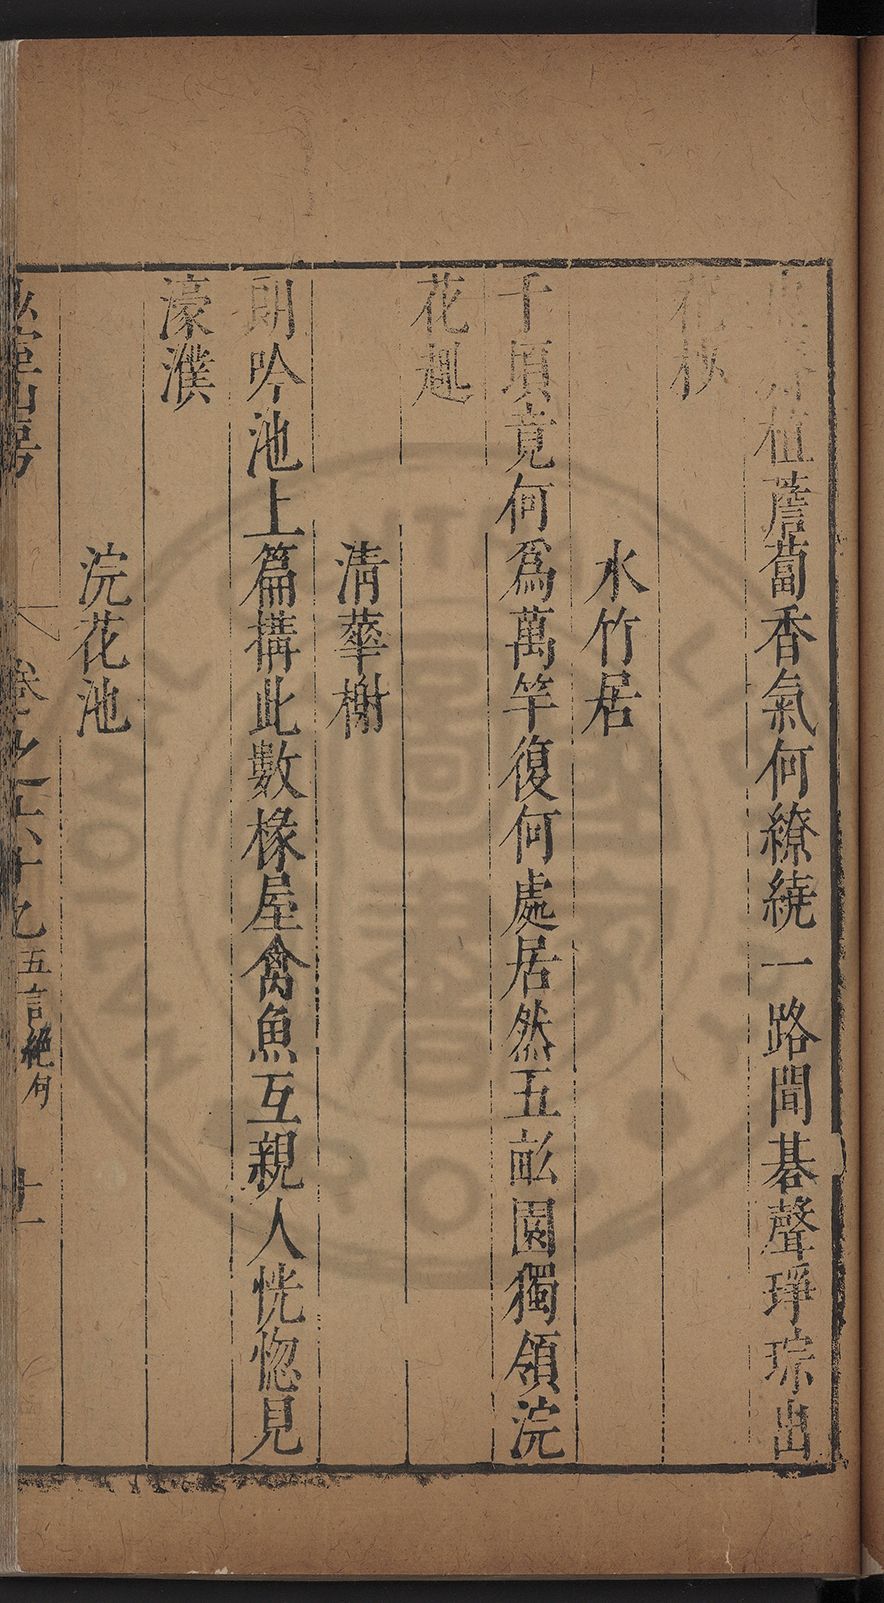 植薝蔔香氣何繚繞一路聞碁聲琤琮出
花杪
水竹居
千頃竟何爲萬竿復何處居然五畝園獨領浣
花趣
清華榭
朗吟池上篇搆此數椽屋禽魚互親人恍惚見
濠濮
浣花池
山房
卷之六十九五言絶句
十一